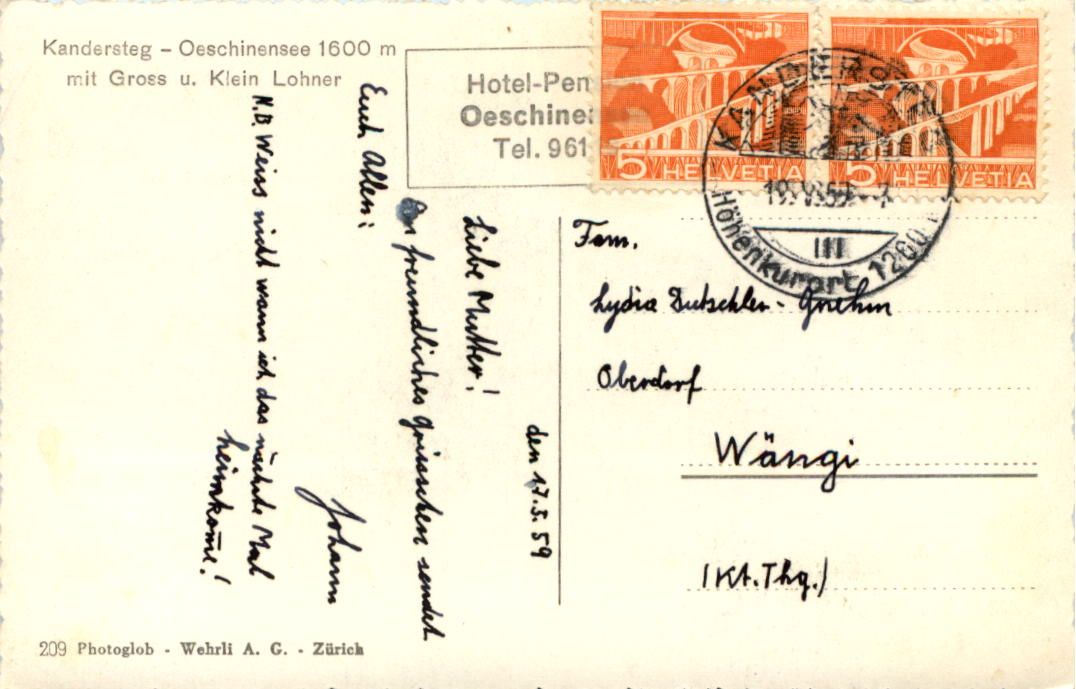 Kandersteg – Oeschinensee 1600 m
mit Gross u. Klein Lohner
Hotel-Pen
Oeschine
Tel. 961
5 HELVETIA
5 HELVETIA
KANDERSTEG
19. V. 59 - 7
III
Höhenkurort 1200 m
den 17.5.59
Liebe Mutter!
Ein freundliches Grüsschen sendet
Euch Allen:
Johann
N.B Weiss nicht wann ich das nächste Mal
heimkome!
Fam.
Lydia Dutschler-Gnehm
Oberdorf
Wängi
(Kt. Thg.)
209 Photoglob - Wehrli A. G. - Zürich